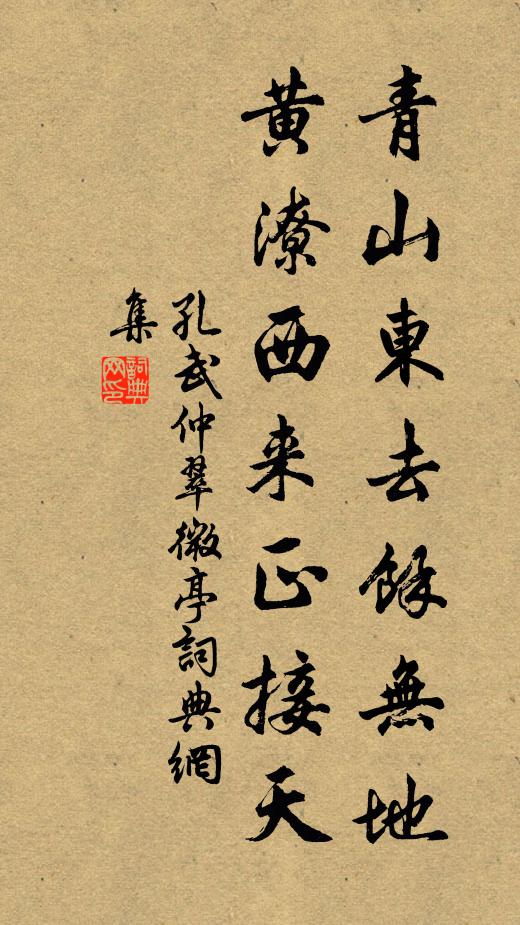 青山東去餘無地
黃潦西来正接天
孔武仲翠微亭詞典網
集
詞典
网印